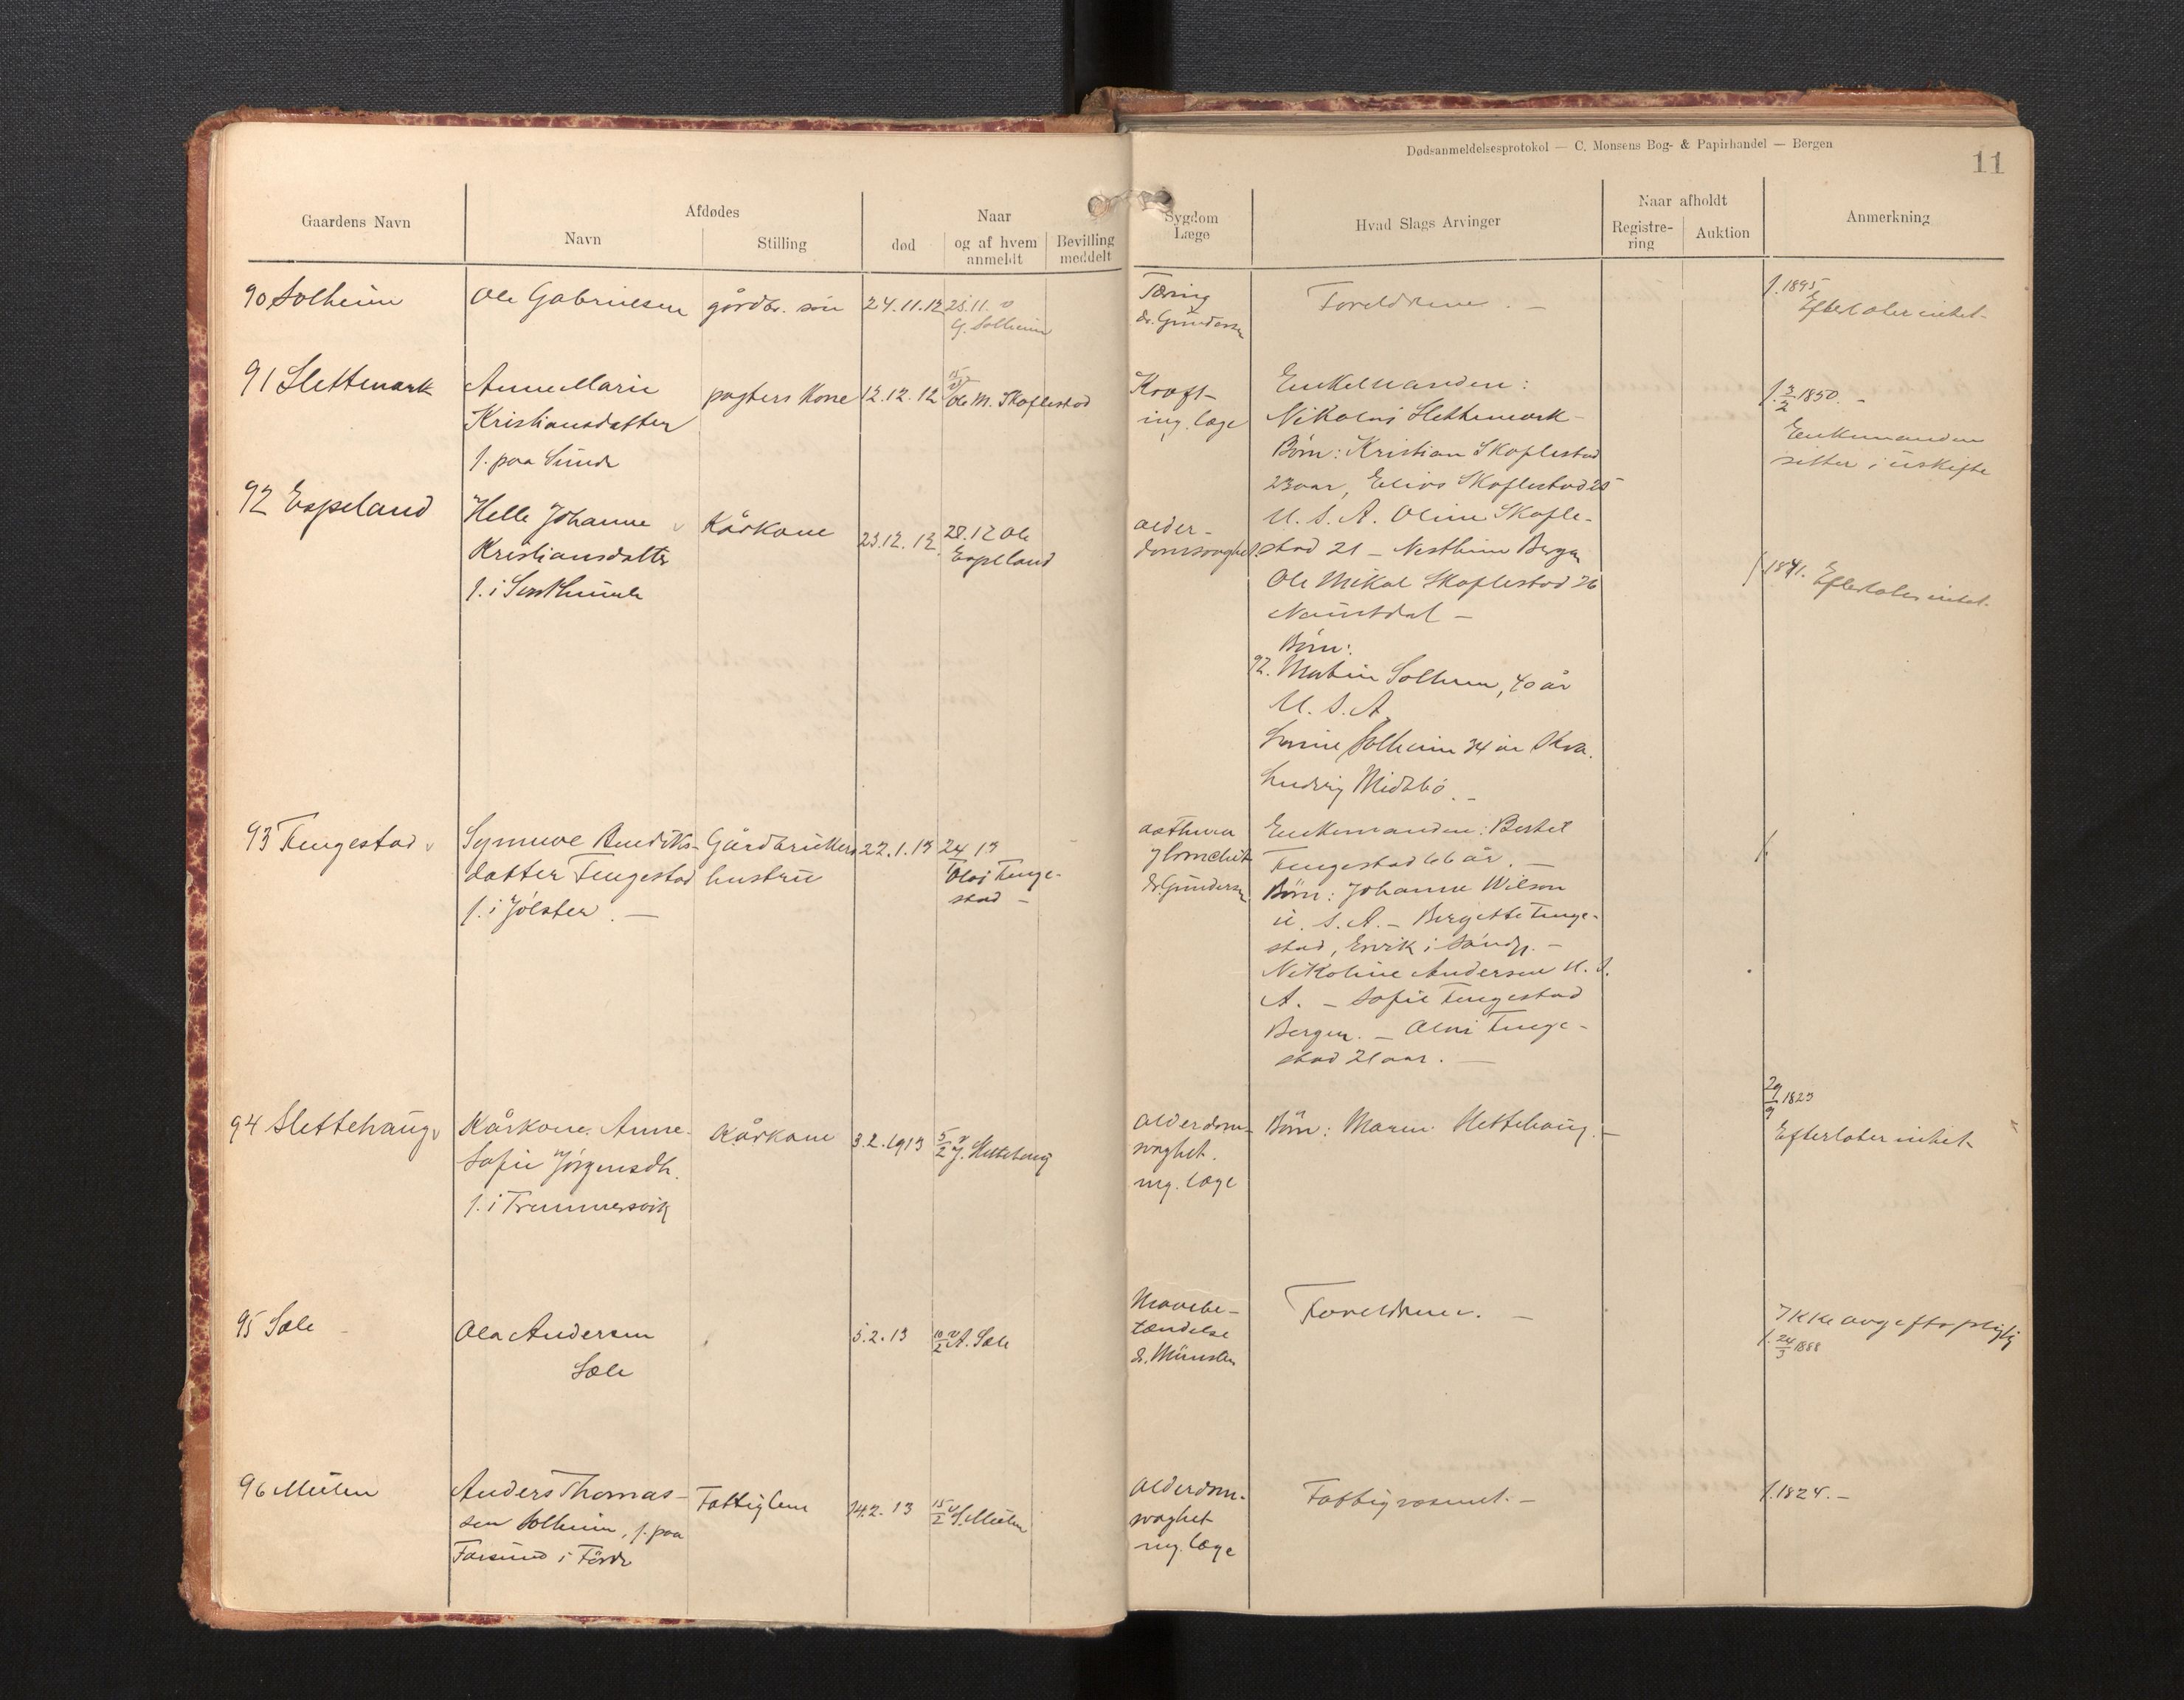 Dødsanmeldelsesprotokol — C. Monsens Bog- & Papirhandel — Bergen
11
Gaardens Navn
Afdødes
Navn
Stilling
Naar
død
og af hvem
anmeldt
Bevilling
meddelt
Sygdom
Læge
Hvad Slags Arvinger
Naar afholdt
Registre-
ring
Auktion
Anmerkning
90 Solheim
Ole Gabrielsen
gårdbr. søn
24.11.12
25.11. v
G. Solheim
Tæring
dr. Gundersen
Foreldrene. —
f. 1895
Efterlater intet
91 Slettemark
Anne Marie
Kristiansdatter
f. paa Sunde
pagters Kone
12.12.12
Ole M. Skaflestad
Kræft
ing. læge
Enkemanden:
Nikolai Slettemark
Børn: Kristian Skaflestad
23 aar, Elias Skaflestad 25
U. S. A. Oline Skafle-
stad 21 — Nestheim Bergen
Ole Mikal Skaflestad 26
Naustdal —
f. 3/2 1850. —
Enkemanden
sitter i uskifte
92 Espeland
Helle Johanne
Kristiansdatter
f. i
Kårkone
23.12.12
28.12 Ole
Espeland
alder-
domssvaghet
Børn:
92. Martin Solheim, 40 år
U. S. A.
Solheim 34 år
Ludvig Midtbø —
f 1841. Efterlater intet.
93 Tengestad
Synneve Bendiks-
datter Tengestad
f. i Jølster. —
Gårdbrukers
hustru
22.1.13
24 13
Olai Tenge-
stad —
asthma
dr. Gundersen
Enkemanden: Bertel
Tengestad 66 år. —
Børn: Johanne Wilson
U. S. A. — Bergette Tenge-
stad, Ervik i
Nikoline Andersen U. S.
A. — Sofie Tengestad
Bergen. — Olai Tenge-
stad 21 aar. —
f.
94 Slettehaug
Kårkone Anne
Sofie Jørgensdtr.
f. i Trommersvik
Kårkone
3.2.1913
5/2 v J. Slettehaug
Alderdom-
svaghet.
ing. læge
Børn: Maren Slettehaug. —
29/9 1823
Efterlater intet
95 Sæle
Ola Andersen
Sæle
5.2.13
10/2 v A. Sæle
Mavebe-
tændelse
dr. Münster
Foreldrene. —
Ikke avgiftspligtig
f. 24/3 1888
96 Mulen
Anders Thomas-
sen Solheim, f. paa
Farsund i Førde
Fattiglem
14.2.13
15/2 v S. Mulen
Alderdom-
svaghet
ing. læge
Fattigvæsenet. —
f. 1824. —